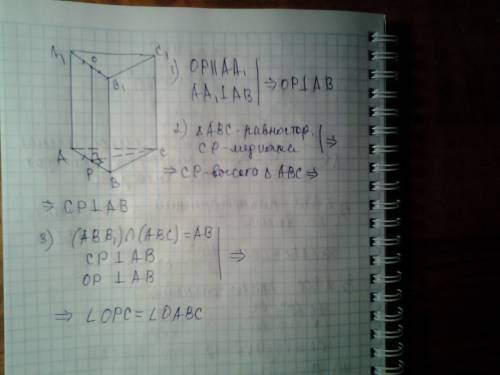 A₁ O C₁
B₁
A C
P
B
1) OP∥AA₁
AA₁⊥AB | ⇒ OP⊥AB
2) △ABC - равностор.
CP - медиана | ⇒
⇒ CP - высота △ABC ⇒
⇒ CP⊥AB
3) (ABB₁)∩(ABC)=AB
CP⊥AB
OP⊥AB | ⇒
⇒ ∠OPC = ∠OABC